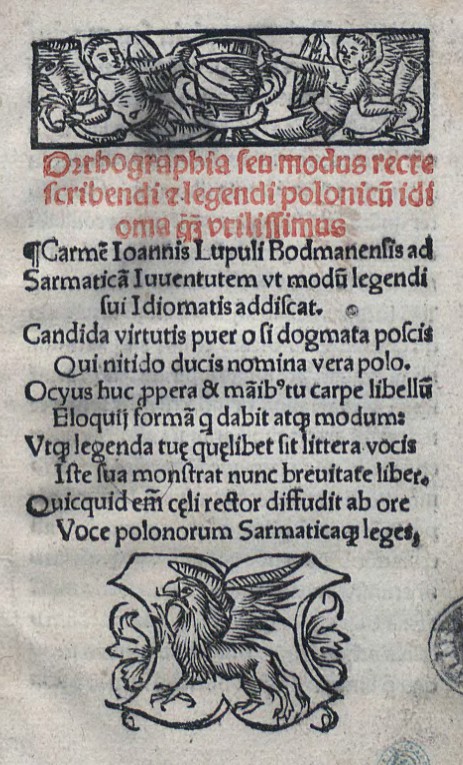 Orthographia seu modus recte
scribendi ⁊ legendi polonicū idi
oma ꝙ̄ vtilissimus
¶Carmē Ioannis Lupuli Bodmanensis ad
Sarmaticā Iuuentutem vt modū legendi
sui Idiomatis addiscat.
Candida virtutis puer o si dogmata poscis
Qui nitido ducis nomina vera polo.
Ocyus huc ꝓpera & māibꝰ tu carpe libellū
Eloquij formā q dabit atqꝫ modum:
Vtqꝫ legenda tuę quęlibet sit littera vocis
Iste sua monstrat nunc breuitate liber.
Quicquid em̄ cęli rector diffudit ab ore
Voce polonorum Sarmaticaqꝫ leges,